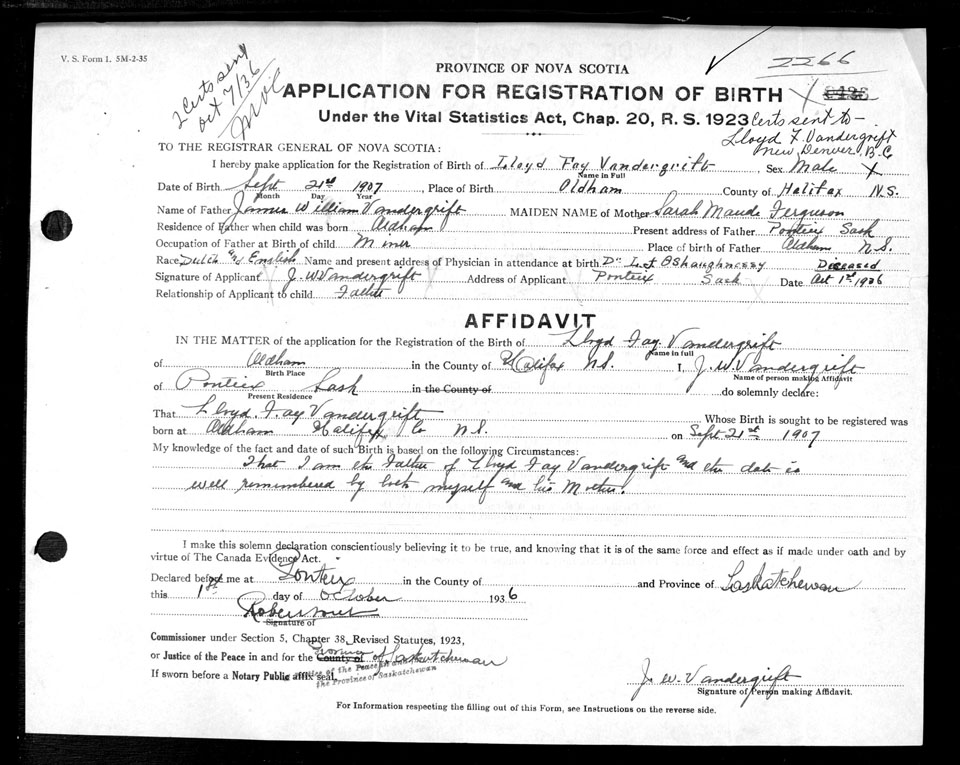 V. S. Form 1. 5M-2-35
2 Certs sent
Oct 7/36
2266
PROVINCE OF NOVA SCOTIA
APPLICATION FOR REGISTRATION OF BIRTH
Under the Vital Statistics Act, Chap. 20, R. S. 1923
Certs sent to -
Lloyd F. Vandergrift
New Denver B.C
TO THE REGISTRAR GENERAL OF NOVA SCOTIA:
I hereby make application for the Registration of Birth of Lloyd Fay Vandergrift Sex Male X
Name in Full
Date of Birth Sept 21st 1907, Place of Birth Oldham County of Halifax N.S.
Month Day Year
Name of Father James William Vandergrift MAIDEN NAME of Mother Sarah Maude Ferguson
Residence of Father when child was born Oldham Present address of Father Ponteix Sask
Occupation of Father at Birth of child Miner Place of birth of Father Oldham N.S.
Race Dutch and English Name and present address of Physician in attendance at birth Dr. L.J OShaughnessy Diceased
Signature of Applicant J. W Vandergrift Address of Applicant Ponteix Sask Date Oct 1st 1936
Relationship of Applicant to child Father
AFFIDAVIT
IN THE MATTER of the application for the Registration of the Birth of Lloyd Fay Vandergrift
Name in full
of Oldham in the County of Halifax N.S. I, J. W. Vandergrift
Birth Place Name of person making Affidavit
of Ponteix Sask in the County of do solemnly declare:
Present Residence
That Lloyd Fay Vandergrift Whose Birth is sought to be registered was
born at Oldham Halifax Co N.S. on Sept 21st 1907
My knowledge of the fact and date of such Birth is based on the following Circumstances:
That I am the Father of Lloyd Fay Vandergrift and the date is
well remembered by both myself and his Mother.
I make this solemn declaration conscientiously believing it to be true, and knowing that it is of the same force and effect as if made under oath and by
virtue of The Canada Evidence Act.
Declared before me at Ponteix in the County of and Province of Saskatchewan
this 1st day of October 1936
Signature of
Commissioner under Section 5, Chapter 38, Revised Statutes, 1923,
or Justice of the Peace in and for the County of Province of Saskatchewan
If sworn before a Notary Public affix seal.
Justice of the Peace in and for
the Province of Saskatchewan
J. W. Vandergrift
Signature of Person making Affidavit.
For Information respecting the filling out of this Form, see Instructions on the reverse side.